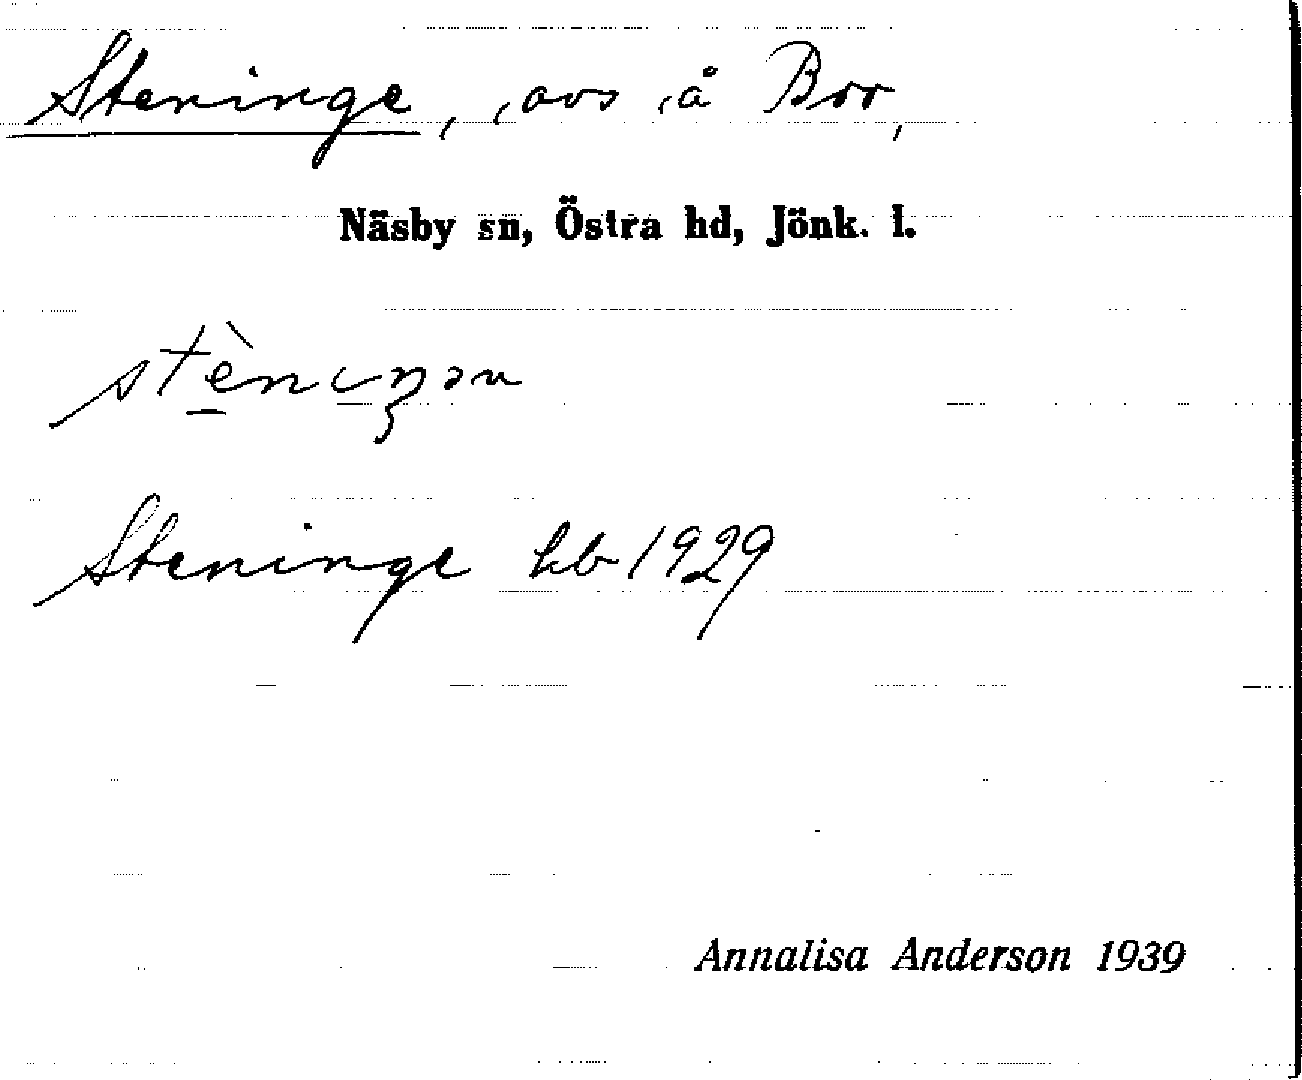 Steninge, avs å Bro,
Näsby sn, Östra hd, Jönk. l.
Steninge kb 1929
Annalisa Anderson 1939